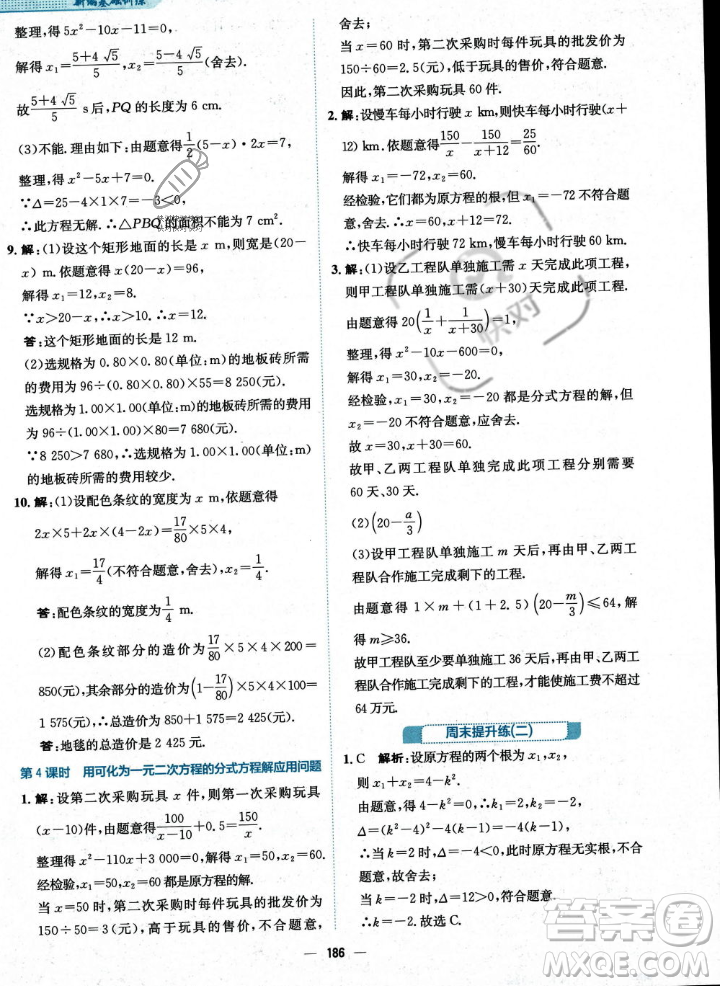 新编基础训练
整理，得5x²-10x-11=0.
解得 x₁=(5+4√5)/5，x₂=(5-4√5)/5(舍去).
故(5+4√5)/5 s后，PQ的长度为6 cm.
(3)不能. 理由如下：由题意得1/2(5-x)·2x=7.
整理，得x²-5x+7=0.
∵Δ=25-4×1×7=-3<0，
∴此方程无解. ∴△PBQ的面积不能为7 cm².
9. 解：(1)设这个矩形地面的长是 x m，则宽是(20-
x) m. 依题意得 x(20-x)=96.
解得 x₁=12，x₂=8.
∵x>20-x，∴x>10. ∴x=12.
答：这个矩形地面的长是 12 m.
(2)选规格为 0.80×0.80(单位：m)的地板砖所需
的费用为 96÷(0.80×0.80)×55=8 250(元).
选规格为 1.00×1.00(单位：m)的地板砖所需的费用
为 96÷(1.00×1.00)×80=7 680(元).
∵8 250>7 680，∴选规格为 1.00×1.00(单位：m)
的地板砖所需的费用较少.
10. 解：(1)设配色条纹的宽度为 x m，依题意得
2x×5+2x×(4-2x)=17/80×5×4，
解得 x₁=17/4(不符合题意，舍去)，x₂=1/4.
答：配色条纹的宽度为1/4 m.
(2)配色条纹部分的造价为17/80×5×4×200=
850(元)，其余部分的造价为(1-17/80)×5×4×100=
1 575(元)，∴总造价为 850+1 575=2 425(元).
答：地毯的总造价是 2 425 元.
第4课时 用可化为一元二次方程的分式方程解应用问题
1. 解：设第二次采购玩具 x 件，则第一次采购玩具
(x-10)件，由题意得100/(x-10)+0.5=150/x.
整理得 x²-110x+3 000=0，解得 x₁=50，x₂=60.
经检验，x₁=50，x₂=60都是原方程的解.
当 x=50 时，第二次采购时每件玩具的批发价为
150÷50=3(元)，高于玩具的售价，不符合题意，
舍去；
当 x=60 时，第二次采购时每件玩具的批发价为
150÷60=2.5(元)，低于玩具的售价，符合题意.
因此，第二次采购玩具 60 件.
2. 解：设慢车每小时行驶 x km，则快车每小时行驶(x+
12) km. 依题意得150/x-150/(x+12)=25/60.
解得 x₁=-72，x₂=60.
经检验，它们都为原方程的根，但 x=-72 不符合题
意，舍去. ∴x=60，x+12=72.
∴快车每小时行驶 72 km，慢车每小时行驶 60 km.
3. 解：(1)设乙工程队单独施工需 x 天完成此项工程，
则甲工程队单独施工需(x+30)天完成此项工程.
由题意得20(1/x+1/(x+30))=1.
整理，得x²-10x-600=0.
解得 x₁=30，x₂=-20.
经检验，x₁=30，x₂=-20都是分式方程的解，
但 x₂=-20不符合题意，应舍去.
故 x=30，x+30=60.
故甲、乙两工程队单独完成此项工程分别需要
60 天、30 天.
(2)(20-a/3)
(3)设甲工程队单独施工 m 天，再由甲、乙两工
程队合作施工完成剩下的工程.
由题意得 1×m+(1+2.5)(20-m/3)≤64，
解得 m≥36.
故甲工程队至少要单独施工 36 天后，再由甲、乙两
工程队合作施工完成剩下的工程，才能使施工费不超过
64 万元.
周末提升练(二)
1. C 解析：设原方程的两个根为 x₁，x₂，
则 x₁+x₂=4-k².
由题意，得 4-k²=0，∴k₁=2，k₂=-2.
Δ=(k²-4)²-4(k-1)=-4(k-1)，
当 k=2 时，Δ=-4<0，此时原方程无实数根，
故应舍去；
当 k=-2 时，Δ=12>0，符合题意.
∴k=-2. 故选 C.
186
快对
答案卷